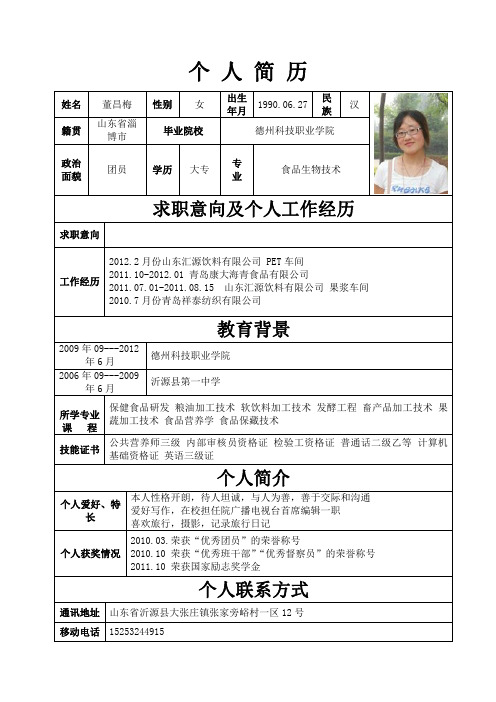 个 人 简 历
姓名 董昌梅 性别 女 出生年月 1990.06.27 民族 汉
籍贯 山东省淄博市 毕业院校 德州科技职业学院
政治面貌 团员 学历 大专 专业 食品生物技术
求职意向及个人工作经历
求职意向
工作经历
2012.2月份山东汇源饮料有限公司 PET车间
2011.10-2012.01 青岛康大海青食品有限公司
2011.07.01-2011.08.15 山东汇源饮料有限公司 果浆车间
2010.7月份青岛祥泰纺织有限公司
教育背景
2009年09---2012年6月 德州科技职业学院
2006年09---2009年6月 沂源县第一中学
所学专业课 程
保健食品研发 粮油加工技术 软饮料加工技术 发酵工程 畜产品加工技术 果
蔬加工技术 食品营养学 食品保藏技术
技能证书
公共营养师三级 内部审核员资格证 检验工资格证 普通话二级乙等 计算机
基础资格证 英语三级证
个人简介
个人爱好、特长
本人性格开朗，待人坦诚，与人为善，善于交际和沟通
爱好写作，在校担任院广播电视台首席编辑一职
喜欢旅行，摄影，记录旅行日记
个人获奖情况
2010.03.荣获“优秀团员”的荣誉称号
2010.10 荣获“优秀班干部”“优秀督察员”的荣誉称号
2011.10 荣获国家励志奖学金
个人联系方式
通讯地址 山东省沂源县大张庄镇张家旁峪村一区12号
移动电话 15253244915